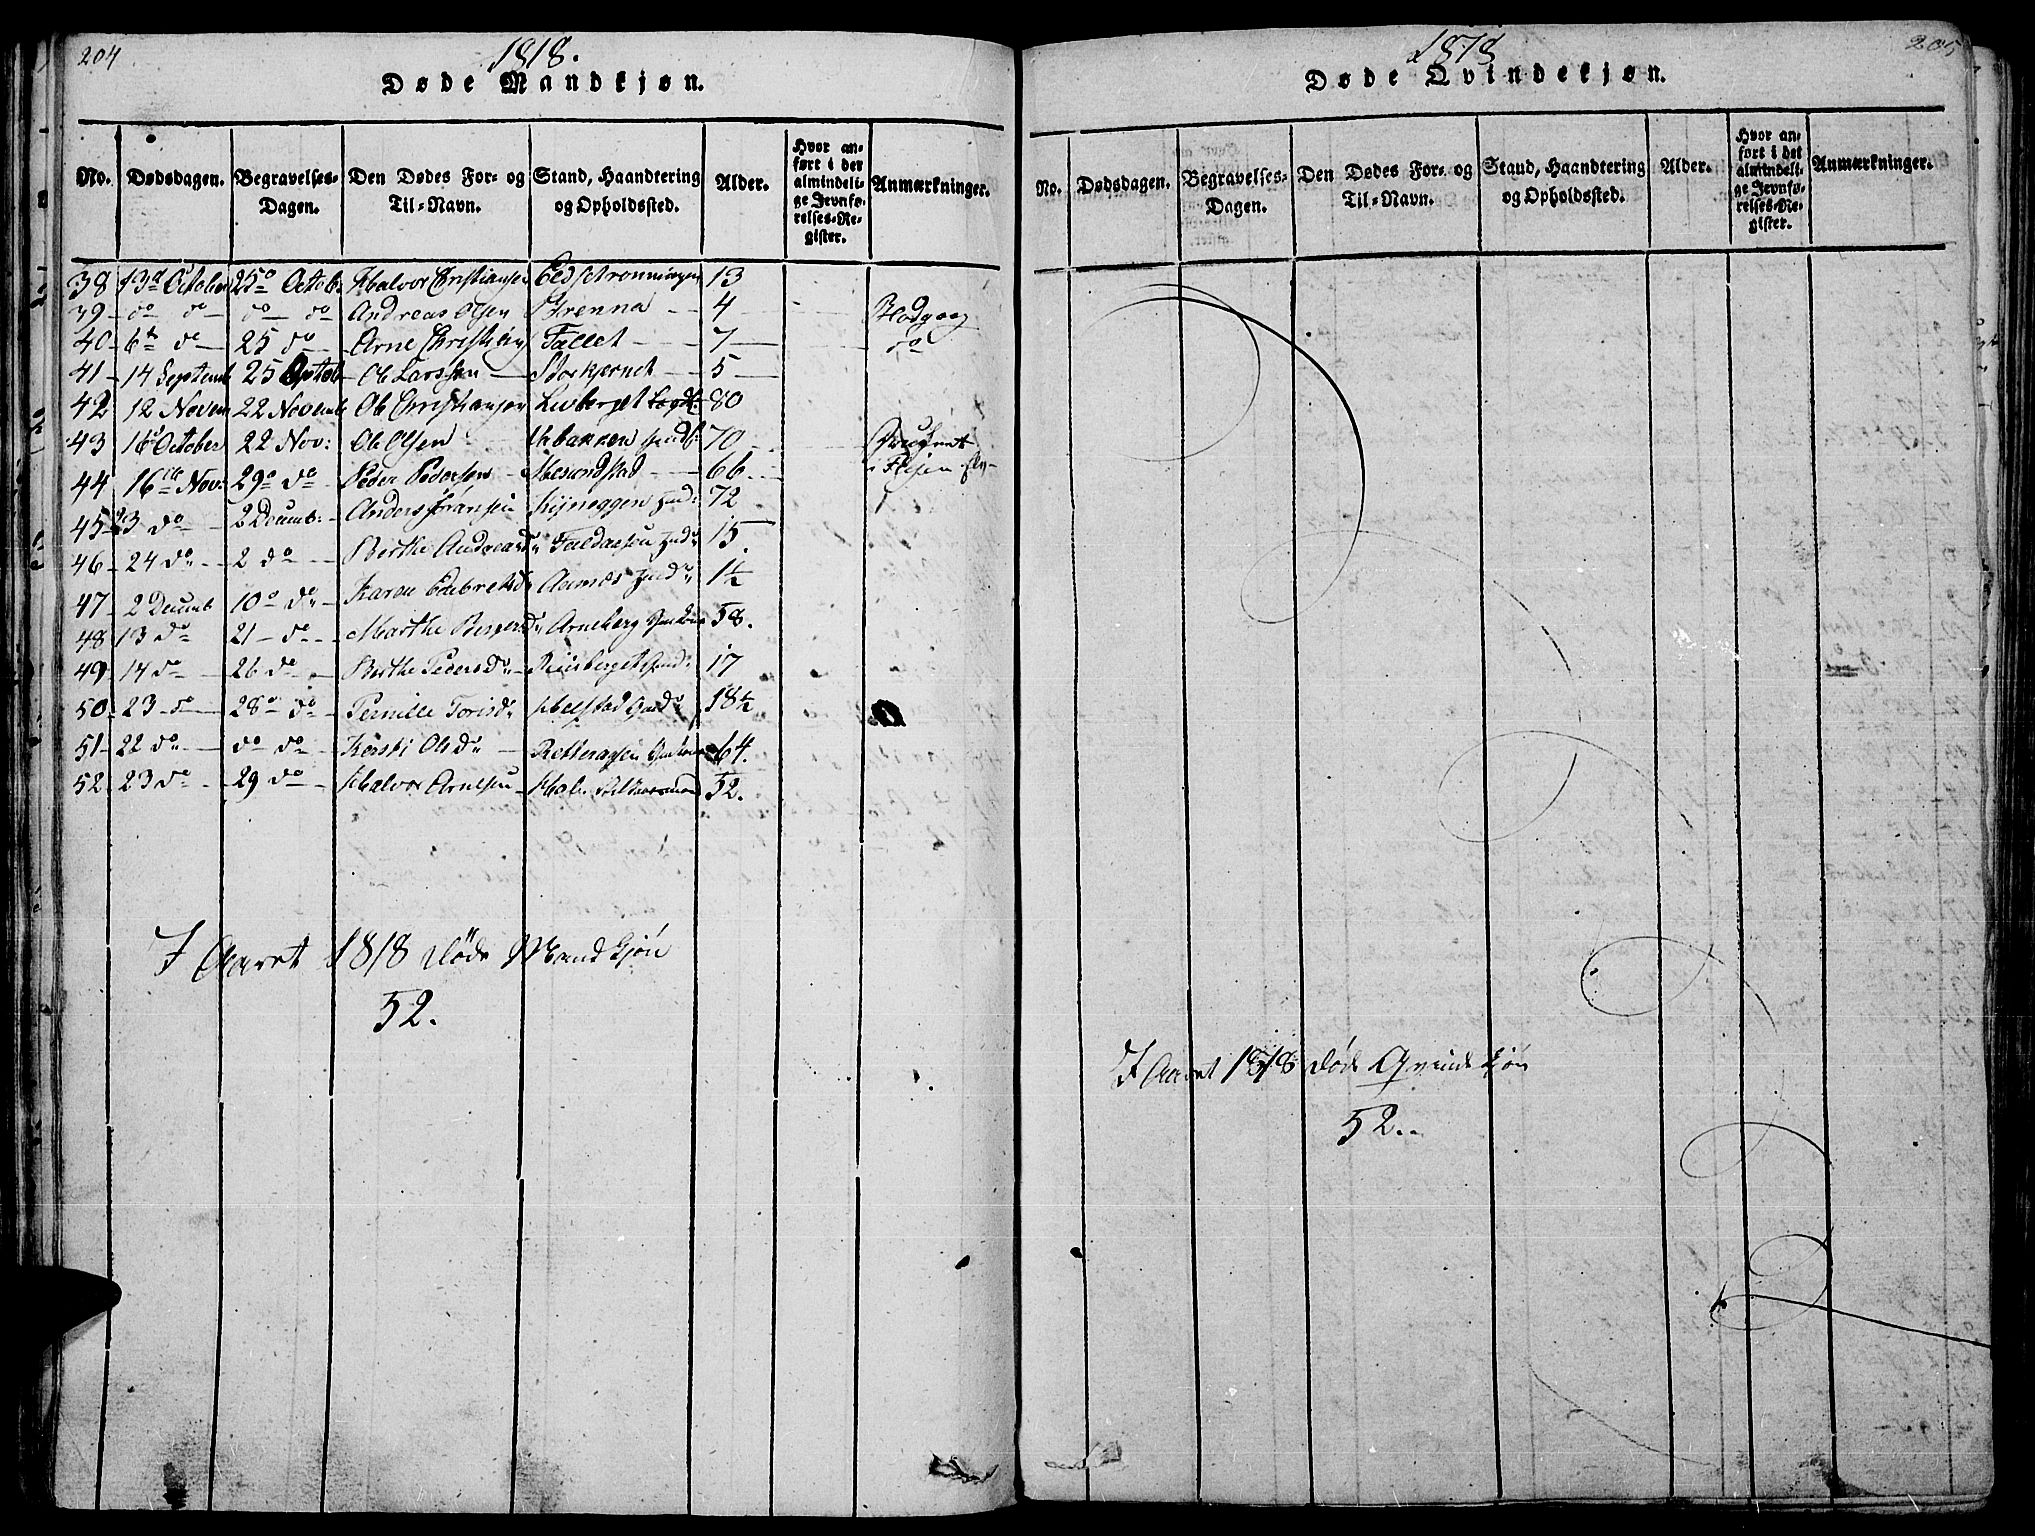 204
1818.
Døde Mandkjøn.
No. Dødsdagen. Begravelses-Dagen. Den Dødes For- og Til-Navn. Stand, Haandtering og Opholdssted. Alder. Hvor anført i det almindelige Jevnførelses-Register. Anmærkninger.
38 13d October 25o Octob: Halvor Christiansen 13
39 do do do do Andreas Olsen Brenna 4 Blodgang
40 6te do 25 do Arne Fallet 7 do
41 14 Septemb 25 Octob Ole Larssen Storkjernet 5
42 12 Novem 22 Novemb Ole Christiansen Lusberget 80
43 16 October 22 Nov: Ole Olsen 70
44 16de Nov: 29o do Peder Pedersen Mesundstad 66 i
45 23 do 2 Decemb: Anders 72
46 24 do 2 do Berthe Andreasdr 15
47 2 Decemb 10o do Karen Embretsdr Aamos 1½
48 13 do 21 do Marthe Arneberg 58.
49 14 do 26 do Berthe Pedersdr 17
50 23 do 28o do Pernille Torisdr Helstad 18½
51 22 do do do Kersti Olsdr 64.
52 23 do 29 do Halvor Arnesen 52.
I Aaret 1818 Døde Mandkjøn
52.
205
1818
Døde Qvindekjøn.
No. Dødsdagen. Begravelses-Dagen. Den Dødes For- og Til-Navn. Stand, Haandtering og Opholdssted. Alder. Hvor anført i det almindelige Jevnførelses-Register. Anmærkninger.
I Aaret 1818 døde Qvindekjøn
52.